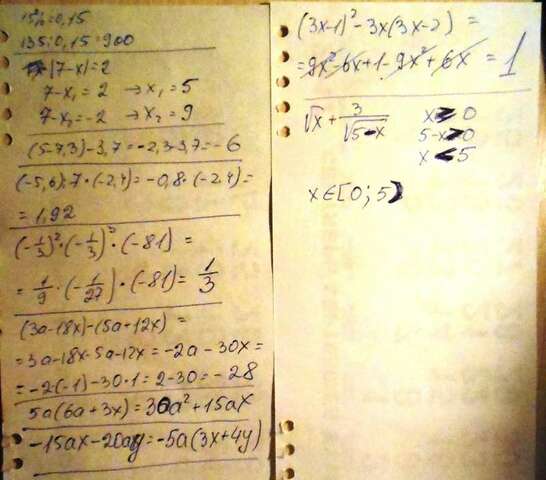 15%=0,15
135:0,15=900
|7-x|=2
7-x₁=2 →x₁=5
7-x₂=-2 →x₂=9
(5-7,3)-3,7=-2,3-3,7=-6
(-5,6):7·(-2,4)=-0,8·(-2,4)=
=1,92
(-1/3)²·(-1/3)³·(-81)=
=1/9·(-1/27)·(-81)=1/3
(3a-18x)-(5a+12x)=
=3a-18x-5a-12x=-2a-30x=
=-2(-1)-30·1=2-30=-28
5a(6a+3x)=30a²+15ax
-15ax-20ay=-5a(3x+4y)
(3x-1)²-3x(3x-2)=
=9x²-6x+1-9x²+6x=1
√x+3/√5-x x≥0
5-x>0
x<5
x∈[0;5)